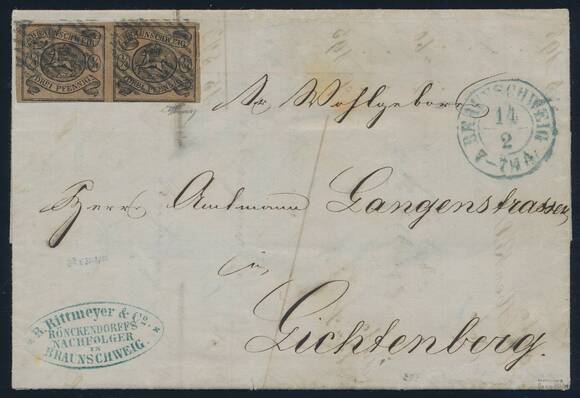 BRAUNSCHWEIG BRAUNSCHWEIG
DREI PFENNIG DREI PFENNIG
Sr Wohlgeboren
BRAUNSCHWEIG
14
2
4-7 N.
Herrn Amtmann Langenstrassen,
in
Lichtenberg.
* R. Rittmeyer & Co. *
RÖNCKENDORFFS
NACHFOLGER
IN
BRAUNSCHWEIG.